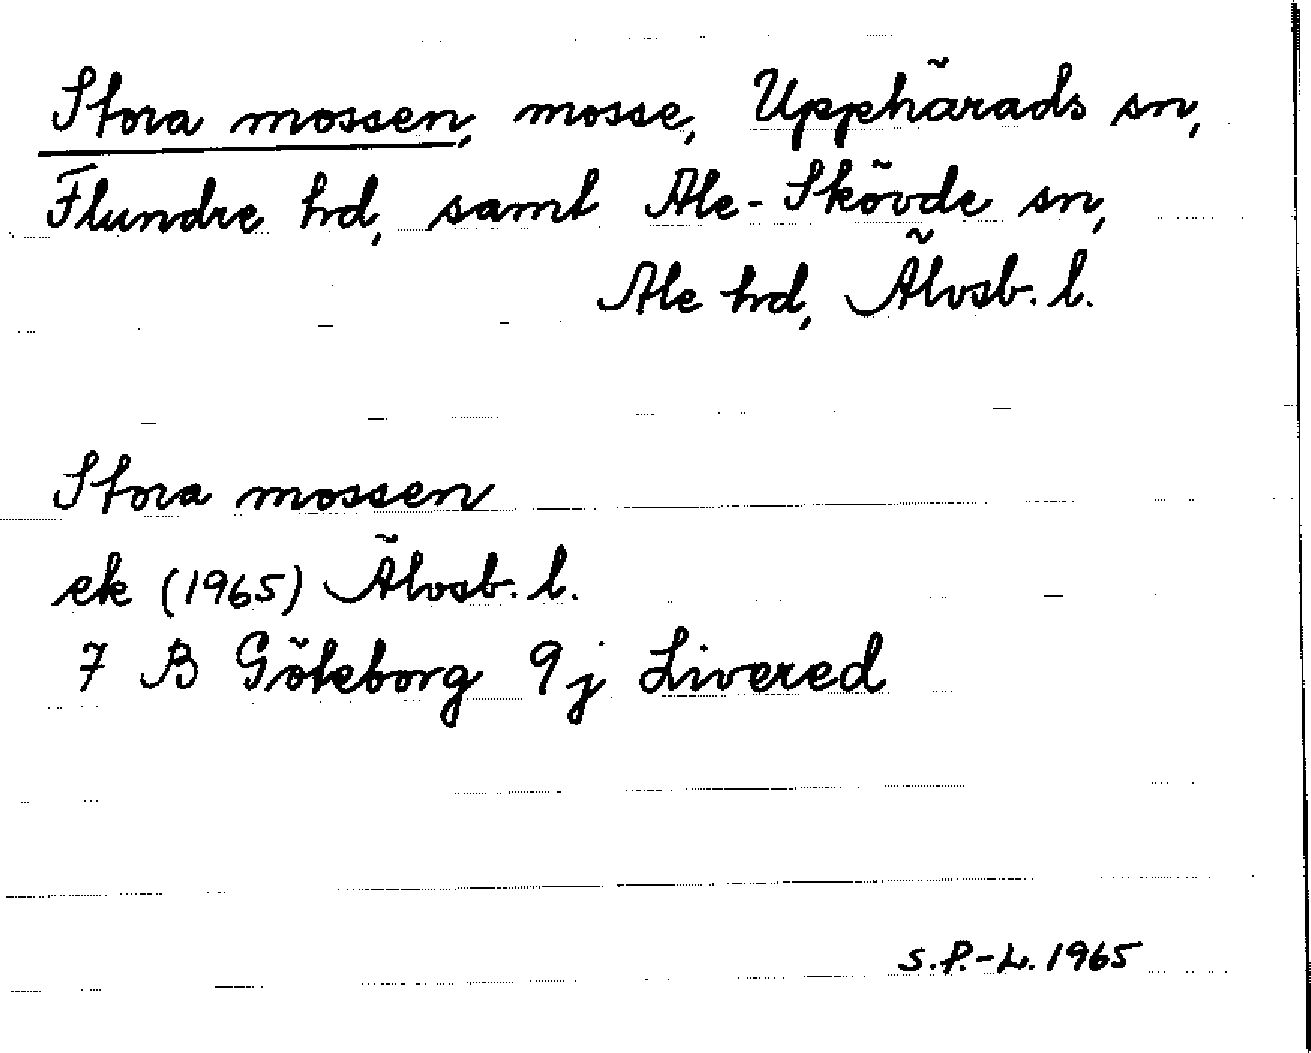 Stora mossen, mosse, Upphärads sn,
Flundre hd, samt Ale-Skövde sn,
Ale hd, Älvsb. l.
Stora mossen
ek (1965) Älvsb. l.
7 B Göteborg 9j Livered
S.P.-L. 1965